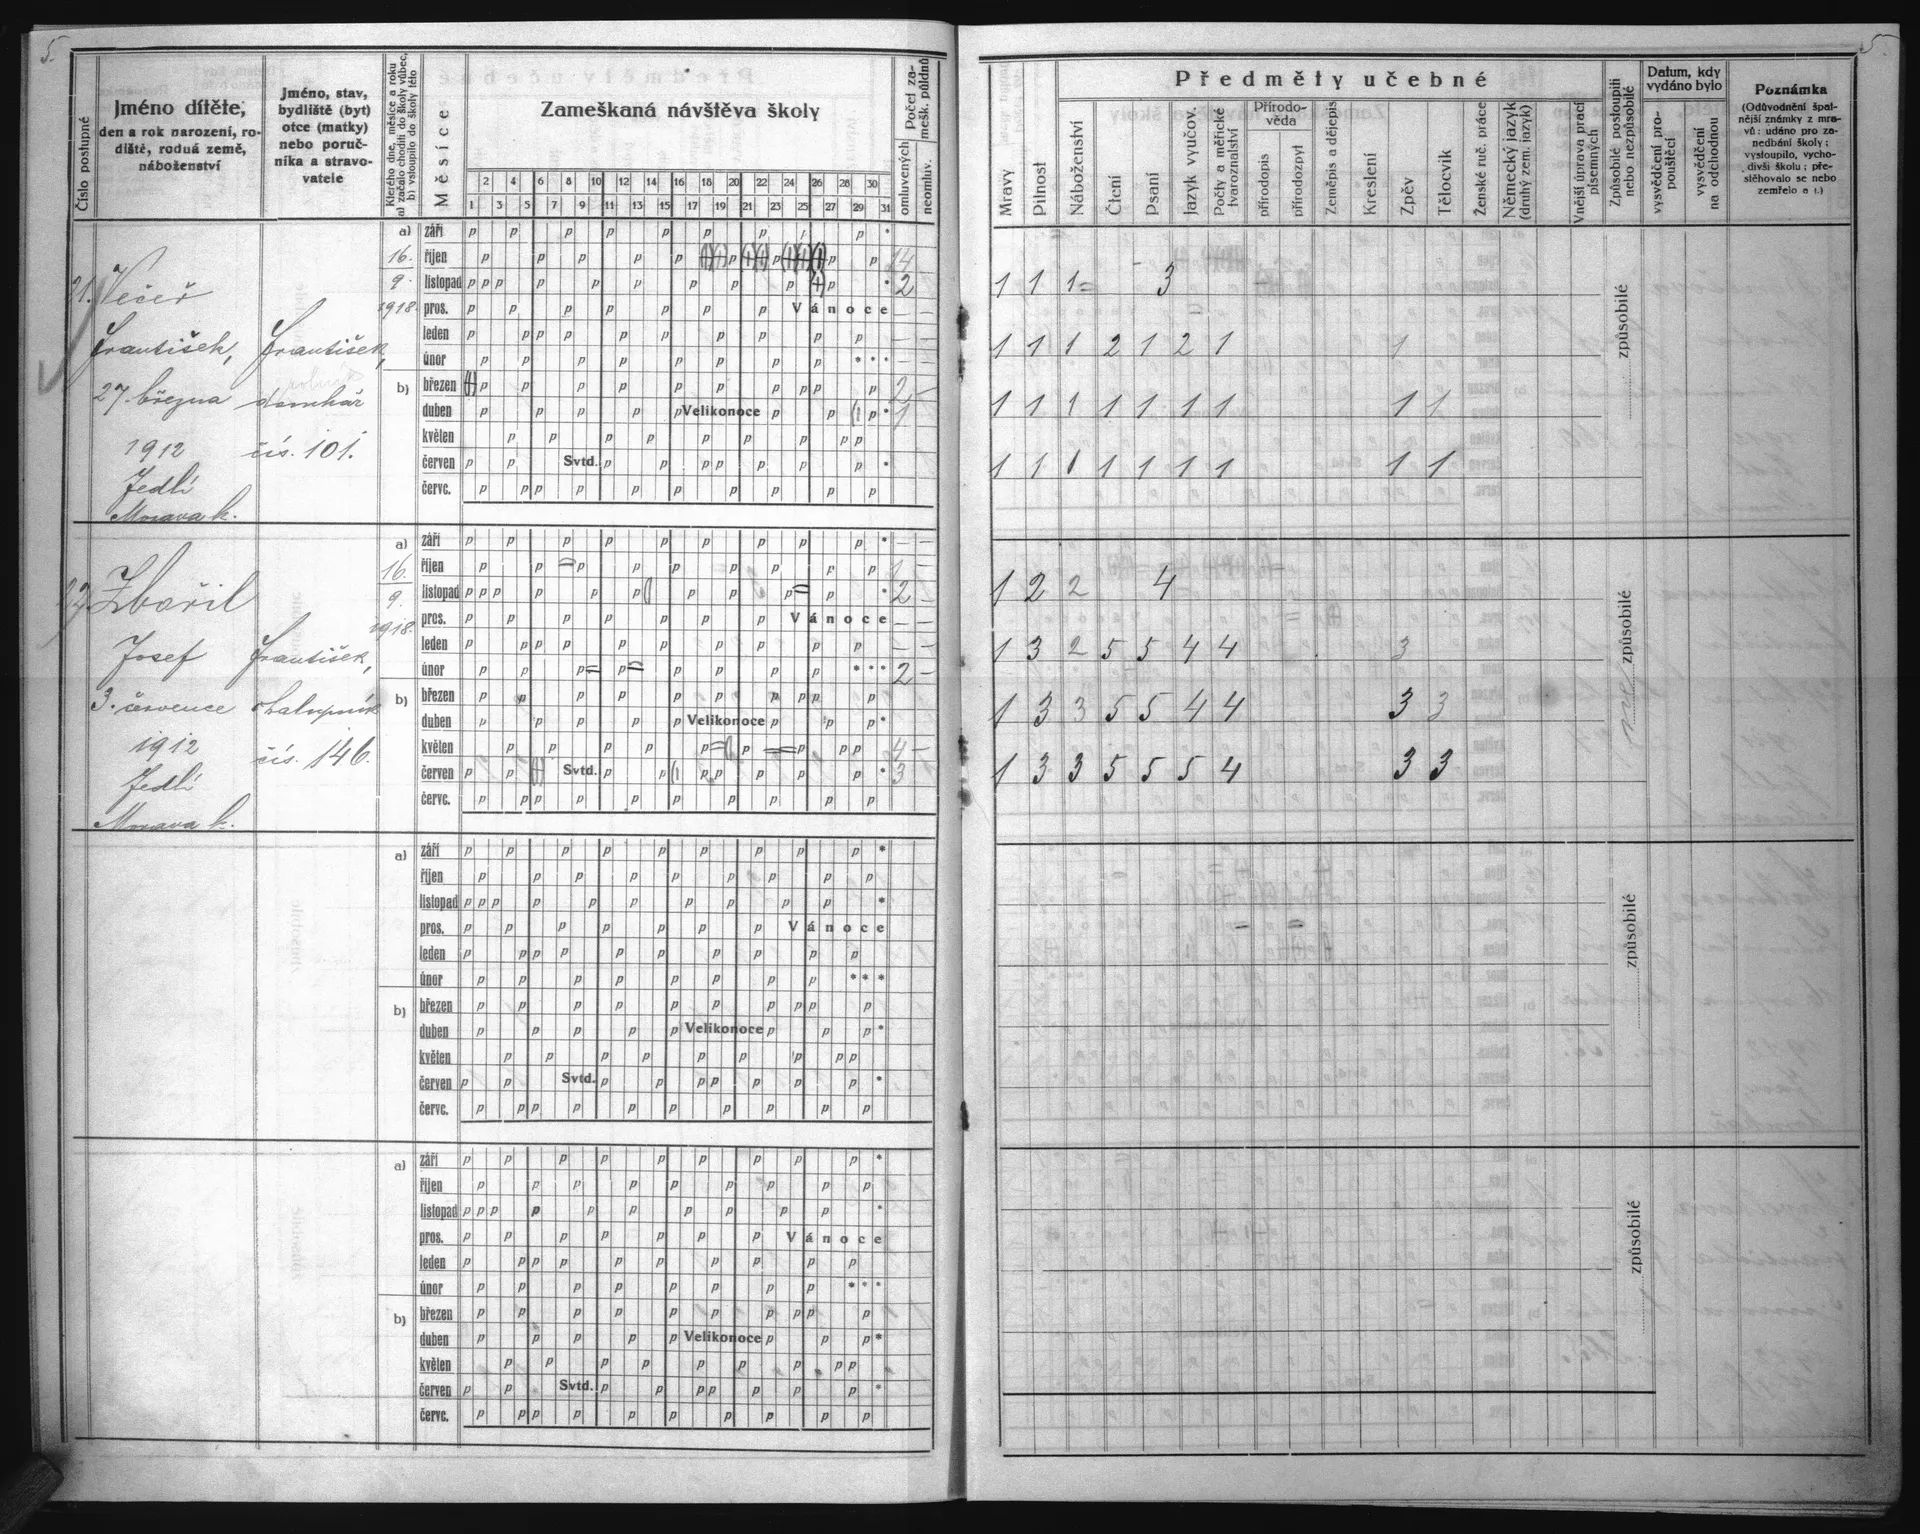 5.
Číslo postupné
Jméno dítěte,
den a rok narození, ro-
diště, rodná země,
náboženství
Jméno, stav,
bydliště (byt)
otce (matky)
nebo poruč-
níka a stravo-
vatele
Kterého dne, měsíce a roku
a) začalo choditi do školy vůbec,
b) vstoupilo do školy této
Měsíce
Zameškaná návštěva školy
2 4 6 8 10 12 14 16 18 20 22 24 26 28 30
1 3 5 7 9 11 13 15 17 19 21 23 25 27 29 31
Počet za-
mešk. půldnů
omluvených
neomluv.
21. Večeř
František,
27. března
1912
Jedlí
Morava k.
František,
domkář
čís. 101.
a)
16.
9.
1918.
b)
září p p p p p p p p p *
říjen p p p p p p p p p 14
listopad p p p p p p p p * 2
pros. p p p p p p p Vánoce
leden p p p p p p p p p
únor p p p p p p p * * *
březen p p p p p p p p p 2
duben p p p p Velikonoce p p p * 1
květen p p p p p p p p p
červen p p Svtd. p p p p p p p *
červc. p p p p p p p p p p
22. Zbořil
Josef
3. července
1912
Jedlí
Morava k.
František,
chalupník
čís. 146.
a)
16.
9.
1918.
b)
září p p p p p p p p p *
říjen p p p p p p p p p
listopad p p p p p p p p p * 2
pros. p p p p p p p Vánoce
leden p p p p p p p p p
únor p p p p p p p * * * 2
březen p p p p p p p p p
duben p p p p Velikonoce p p p *
květen p p p p p p p p p 4
červen p p Svtd. p p p p p p p * 3
červc. p p p p p p p p p p
a)
b)
září p p p p p p p p p *
říjen p p p p p p p p p
listopad p p p p p p p p p *
pros. p p p p p p p Vánoce
leden p p p p p p p p p
únor p p p p p p p * * *
březen p p p p p p p p p
duben p p p p Velikonoce p p *
květen p p p p p p p p p
červen p p Svtd. p p p p p p p *
červc. p p p p p p p p p p
a)
b)
září p p p p p p p p p *
říjen p p p p p p p p p
listopad p p p p p p p p p *
pros. p p p p p p p Vánoce
leden p p p p p p p p p
únor p p p p p p p * * *
březen p p p p p p p p p
duben p p p p Velikonoce p p p *
květen p p p p p p p p p
červen p p Svtd. p p p p p p p *
červc. p p p p p p p p p p
5.
Mravy
Pilnost
Předměty učebné
Náboženství
Čtení
Psaní
Jazyk vyučov.
Počty a měřické
tvaroznalství
Přírodo-
věda
přírodopis
přírodozpyt
Zeměpis a dějepis
Kreslení
Zpěv
Tělocvik
Ženské ruč. práce
Německý jazyk
(druhý zem. jazyk)
Vnější úprava prací
písemných
Způsobilé postoupiti
nebo nezpůsobilé
Datum, kdy
vydáno bylo
vysvědčení pro-
pouštěcí
vysvědčení
na odchodnou
Poznámka
(Odůvodnění špat-
nější známky z mra-
vů: udáno pro za-
nedbání školy;
vystoupilo, vycho-
divši školu; pře-
stěhovalo se nebo
zemřelo a t.)
1 1 1 3
1 1 1 2 1 2 1 1
1 1 1 1 1 1 1 1 1
1 1 1 1 1 1 1 1 1
způsobilé
1 2 2 4
1 3 2 5 5 4 4 3
1 3 3 5 5 4 4 3 3
1 3 3 5 5 5 4 3 3
ne způsobilé
způsobilé
způsobilé